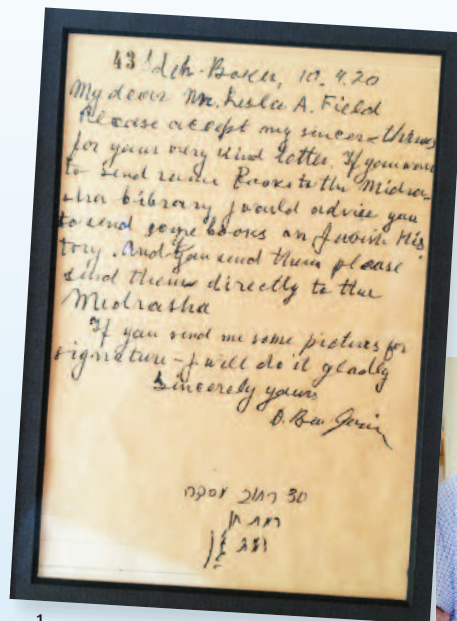 43 Sdeh-Boker, 10.4.70
My dear Mr. Leslie A. Field
Please accept my sincere thanks
for your very kind letter. If you want
to send some Books to the Midra-
sha Library I would advise you
to send some books on Jewish His-
tory. And if you send them please
send them directly to the
Midrasha
If you send me some pictures for
signature - I will do it gladly
Sincerely yours
D. Ben Gurion
רחוב
רמת חן
רמת גן
1